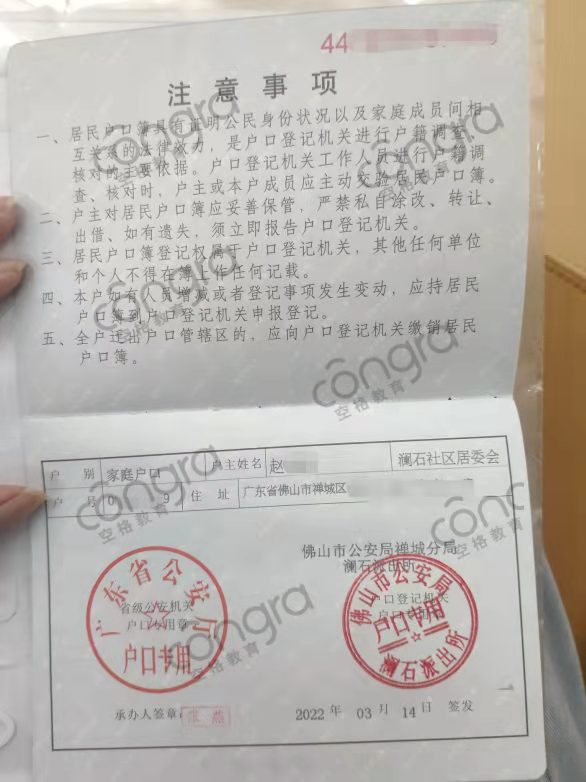 44
注意事项
一、居民户口簿具有证明公民身份状况以及家庭成员间相
互关系的法律效力，是户口登记机关进行户籍调查、
核对的主要依据。户口登记机关工作人员进行户籍调
查、核对时，户主或本户成员应主动交验居民户口簿。
二、户主对居民户口簿应妥善保管，严禁私自涂改、转让、
出借、如有遗失，须立即报告户口登记机关。
三、居民户口簿登记权属于户口登记机关，其他任何单位
和个人不得在簿上作任何记载。
四、本户如有人员增减或者登记事项发生变动，应持居民
户口簿到户口登记机关申报登记。
五、全户迁出户口管辖区的，应向户口登记机关缴销居民
户口簿。
户别 家庭户口 户主姓名 赵 澜石社区居委会
户号 0 9 住址 广东省佛山市禅城区
佛山市公安局禅城分局
澜石派出所
广东省公安厅
省级公安机关
户口专用章
户口专用
佛山市公安局
户口登记机关
户口专用
户口专用
澜石派出所
承办人签章：
2022年 03月 14日 签发
congra
空格教育
congra
空格教育
congra
空格教育
congra
空格教育
congra
空格教育
congra
空格教育
cong
空格教育
congra
空格教育